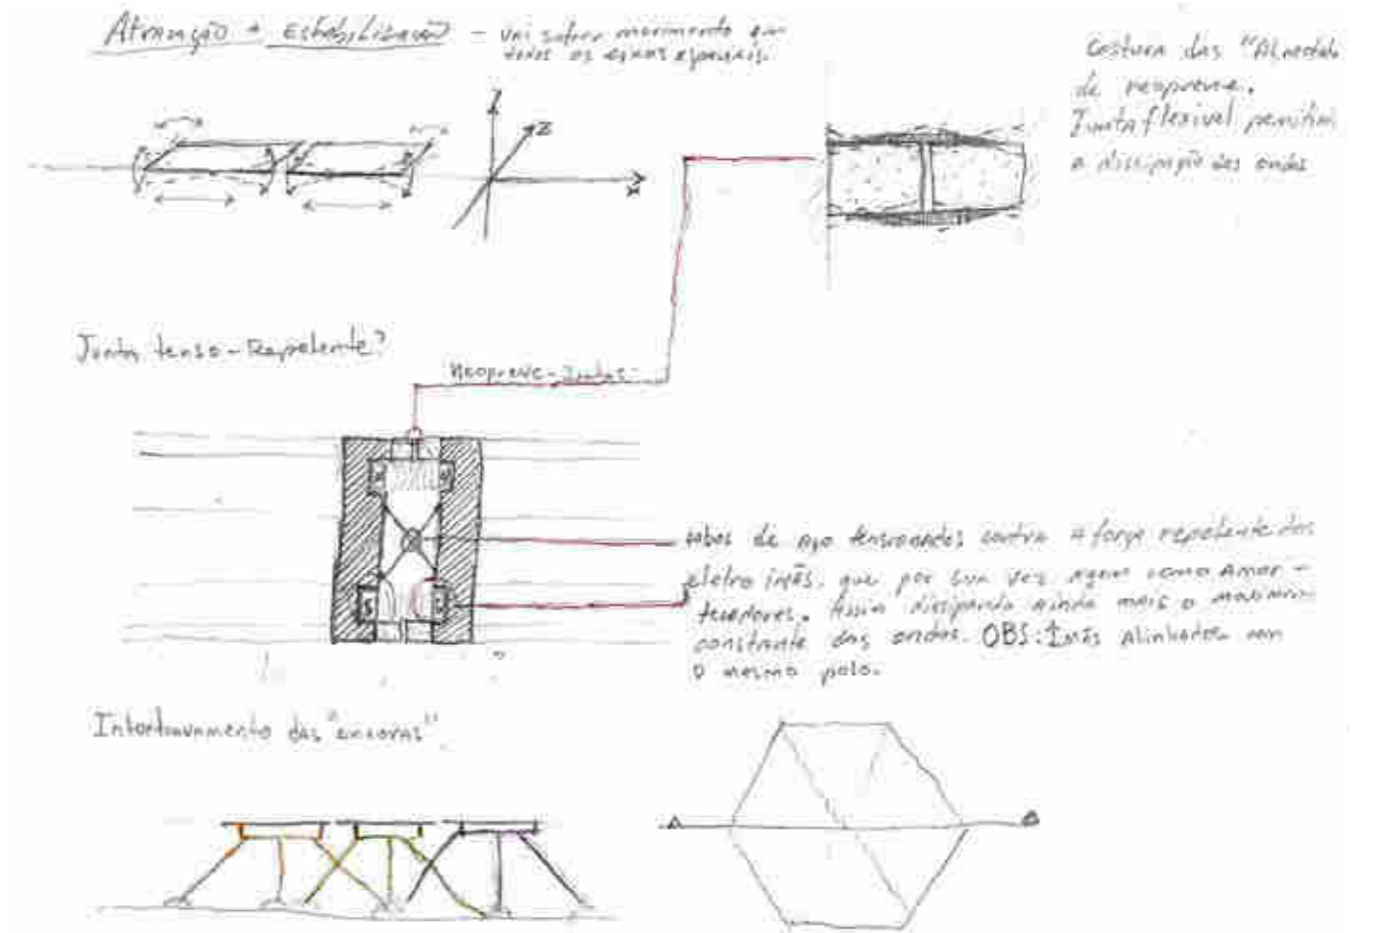 Atracação + Estabilização - Vai sofrer movimento em
todos os eixos espaciais.
Y
Z
X
Costura das "Almofadas
de neoprene.
Junta flexivel permitindo
a dissipação das ondas
Junta tenso-Repelente?
Neoprene-Juntas
N N
Cabos de aço tensionados contra A força repelente dos
eletro imãs, que por sua vez agem como Amor-
tecedores. Assim dissipando ainda mais o movimento
constante das ondas. OBS: Imãs Alinhados com
o mesmo polo.
S S
Intertravamento das "ancoras"
A A